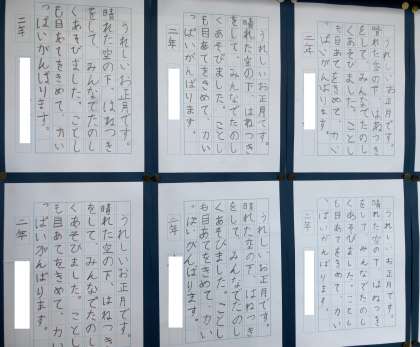 うれしいお正月です。
晴れた空の下、はねつき
をして、みんなでたのし
くあそびました。ことし
も目あてをきめて、力い
っぱいがんばります。
二年
うれしいお正月です。
晴れた空の下、はねつき
をして、みんなでたのし
くあそびました。ことし
も目あてをきめて、力い
っぱいがんばります。
二年
うれしいお正月です。
晴れた空の下、はねつき
をして、みんなでたのし
くあそびました。ことし
も目あてをきめて、力い
っぱいがんばります。
二年
うれしいお正月です。
晴れた空の下、はねつき
をして、みんなでたのし
くあそびました。ことし
も目あてをきめて、力い
っぱいがんばります。
二年
うれしいお正月です。
晴れた空の下、はねつき
をして、みんなでたのし
くあそびました。ことし
も目あてをきめて、力い
っぱいがんばります。
二年
うれしいお正月です。
晴れた空の下、はねつき
をして、みんなでたのし
くあそびました。ことし
も目あてをきめて、力い
っぱいがんばります。
二年